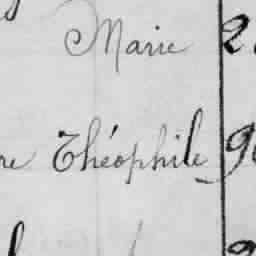 Marie 2
re Théophile 9